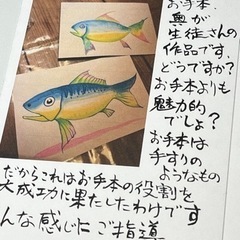 お手本、
奥が
生徒さんの
作品です、
どうですか?
お手本よりも
魅力的
でしょ?
お手本は
手すりの
ようなもの
だからこれはお手本の役割を
大成功に果たしたわけです
んな感じにご指導